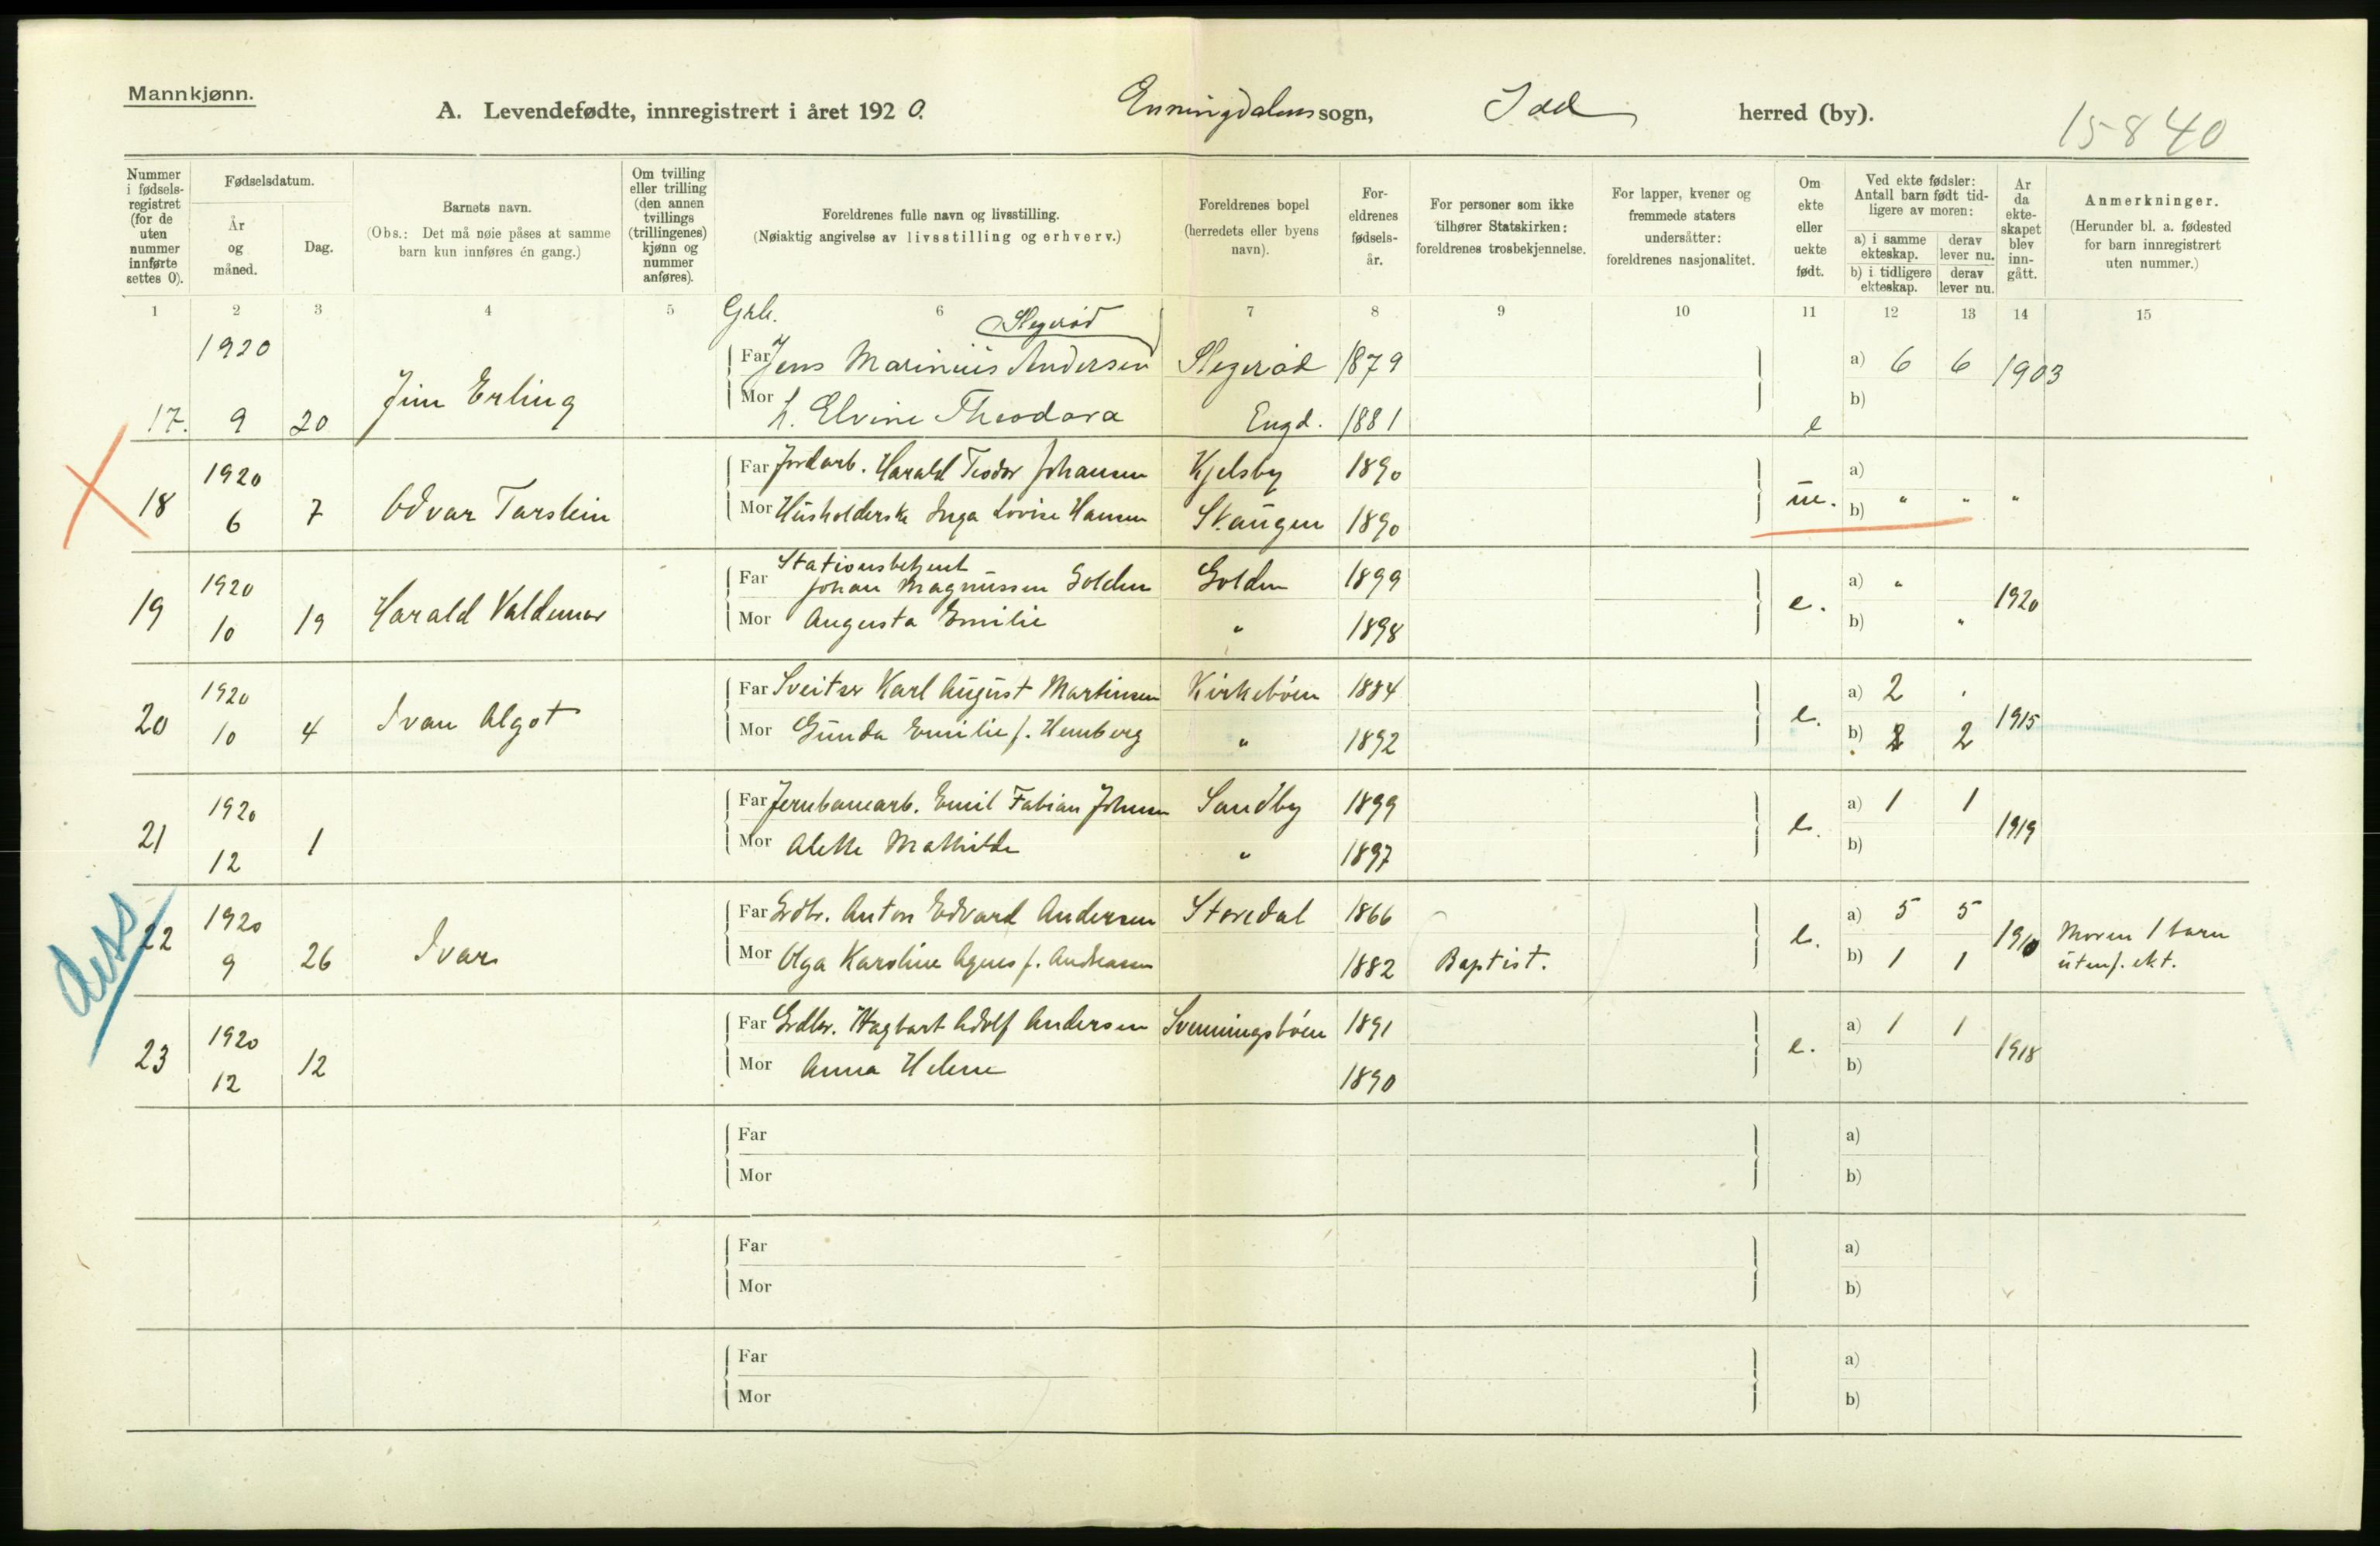 Mannkjønn.
A. Levendefødte, innregistrert i året 1920. Enningdalens sogn, Idd herred (by). 15840
Nummer i fødselsregistret (for de uten nummer innførte settes 0).
Fødselsdatum.
År og måned.
Dag.
Barnets navn.
(Obs.: Det må nøie påses at samme barn kun innføres én gang.)
Om tvilling eller trilling (den annen tvillings (trillingenes) kjønn og nummer anføres).
Foreldrenes fulle navn og livsstilling.
(Nøiaktig angivelse av livsstilling og erhverv.)
Foreldrenes bopel (herredets eller byens navn).
Foreldrenes fødselsår.
For personer som ikke tilhører Statskirken: foreldrenes trosbekjennelse.
For lapper, kvener og fremmede staters undersåtter: foreldrenes nasjonalitet.
Om ekte eller uekte født.
Ved ekte fødsler: Antall barn født tidligere av moren:
a) i samme ekteskap. derav lever nu.
b) i tidligere ekteskap. derav lever nu.
År da ekteskapet blev inngått.
Anmerkninger.
(Herunder bl. a. fødested for barn innregistrert uten nummer.)
1 2 3 4 5 6 7 8 9 10 11 12 13 14 15
17. 1920 9 20 Jim Erling
Slegeröd
Far Jens Marinius Andersen Slegeröd 1879 a) 6 6 1903
Mor h. Elvine Theodora Engd. 1881 e b)
18 1920 6 7 Odvar Tarstein
Far Jordarb. Harald Teodor Johansen Kjelsby 1890 a)
Mor Husholderske Inga Lovise Hansen Skaugen 1890 ue. b) " " "
19 1920 10 19 Harald Valdemar
Stationsbetjent
Far Johan Magnussen Golden Golden 1899 a) "
Mor Augusta Emilie " 1898 e. b) " 1920
20 1920 10 4 Ivan Algot
Far Sveitser Karl August Martinsen Kirkeböen 1884 a) 2
Mor Gunda Emilie f. Hemberg " 1892 e. b) 2 2 1915
21 1920 12 1
Far Jernbanearb. Emil Fabian Johnsen Sandby 1899 a) 1 1
Mor Alette Mathilde " 1897 e. b) 1919
dess
22 1920 9 26 Ivar
Far Grdbr. Anton Edvard Andersen Storedal 1866 a) 5 5
Mor Olga Karoline Agnes f. Andreasen 1882 Baptist. e. b) 1 1 1910
Moren 1 barn
utenf. ekt.
23 1920 12 12
Far Grdbr. Hagbart Adolf Andersen Svenningsböen 1891 a) 1 1
Mor Anna Helene 1890 e. b) 1918
Far a)
Mor b)
Far a)
Mor b)
Far a)
Mor b)